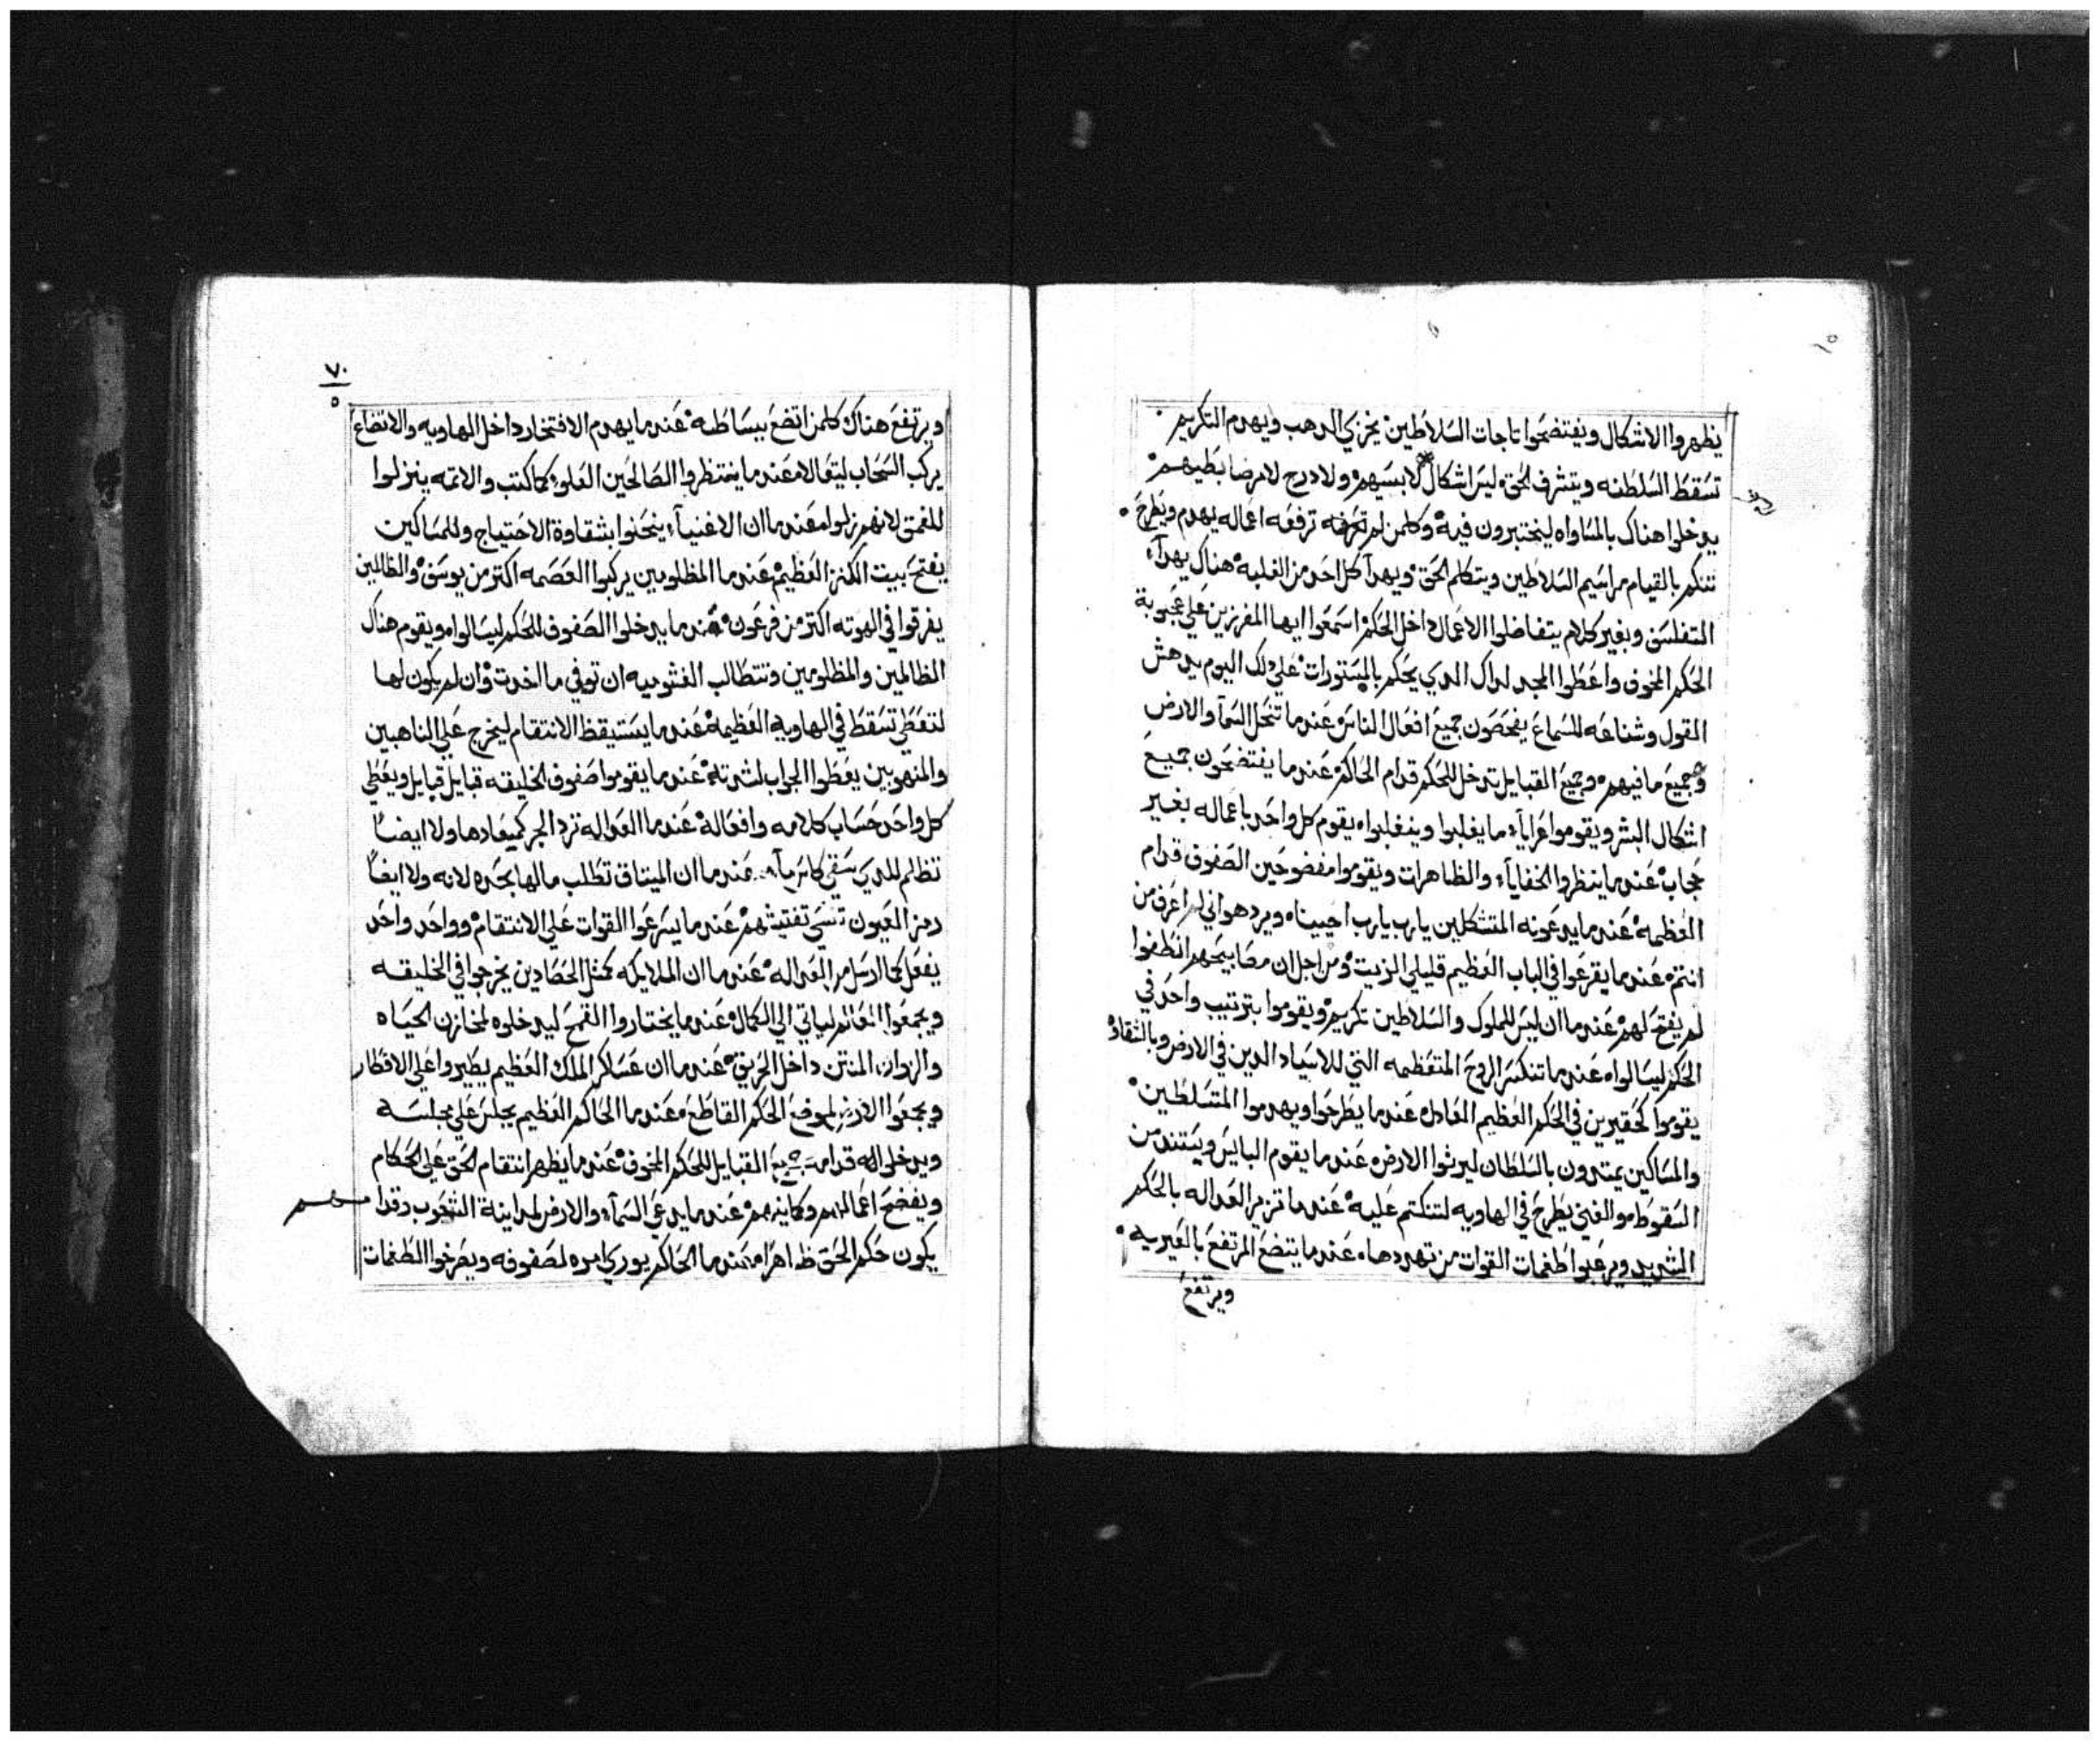 يظهروا الاشكال ويفتضحوا تاجات السلاطين يخزي الدهب ويهدم التكريم
تسقط السلطنه ويتشرف الحق ليس اشكال لابسيهم ولا درج لامرضا بطيهم
يدخلوا هناك بالمساواه ليختبرون فيه وكلمن لم ترفعه اعماله يهدم ويطرح
تنكر بالقيام مراسيم السلاطين ويتكلم الحق ويهدآ كل احد من الغلبه هناك يهدآ
المتفلسق وبغير كلام يتفاضلوا الاعمال داخل الحكم اسمعوا ايها المفرزين علي عجوبة
الحكم المخوف واعطوا المجد لداك الدي يحكم بالمستورات علي دلك اليوم يدهش
القول وشناعه للسماع يفحصون جميع افعال الناس عندما تنحل السمآ والارض
وجميع ما فيهم وجميع القبايل تدخل للحكم قدام الحاكم عندما يفتضحون جميع
اشكال البشر ويقوموا عرايآ ما يغلبوا وينغلبوا يقوم كل واحد باعماله بغير
حجاب عندما ينظروا الخفايآ والظاهرات ويقوموا مفضوحين الصفوف قدام
العظمه عندما يدعونه المتشكلين يارب يارب اجيبناه ويردهواني لم اعرف من
انتم عندما يقرعوا في الباب العظيم قليلي الزيت ومن اجل ان مصابيحهم انطفوا
لم يفتح لهم عندما ان ليس للملوك والسلاطين تكريم ويقوموا بترتيب واحد في
الحكم ليسالواه عندما تنكسر الروح المتعظمه التي للاسياد الدين في الارض وبالشقاد
يقوموا كحقيرين في الحكم العظيم العادل عندما يطرحوا ويهدموا المتسلطين
والمساكين يمتدون بالسلطان ليرثوا الارض عندما يقوم البايس ويستند من
السقوط والغني يطرح في الهاويه لتنكتم عليه عندما تزير العداله بالحكم
الشديد ويرعبوا طغمات القوات من تهددها عندما يتضع المرتفع بالغيريه
ويرتفع
٧٠
٥
ويرتفع هناك كلمن اتضع ببساطته عندما يهدم الافتخار داخل الهاويه والاتضاع
يركب السحاب ليتعالا عندما ينتظروا الصالحين العلو كما كتب والاتمه ينزلوا
للغمق لانهم نزلوا عندما ان الاغنيآ ينحنوا بشقاوة الاحتياج وللمساكين
يفتح بيت الكنز العظيم عندما المظلومين يركبوا العصمه اكتر من يوسف والظالمين
يغرقوا في الهوته اكتر من فرعون عندما يدخلوا الصفوف للحكم ليسالوا ويقوم هناك
الظالمين والمظلومين وتتطالب الغشوميه ان توفي ما اخدت وان لم يكون لها
لتعطي تسقط في الهاويه العظيمه عندما يستيقظ الانتقام ليخرج علي الناهبين
والمنهوبين يعطوا الجواب لشدته عندما يقوموا صفوف الخليقه قبايل قبايل ويعطي
كل واحد حساب كلامه وافعاله عندما العداله ترد الجر كميعادها ولا ايضاً
تظلم للدي سقي كاس مآ عندما ان الميتاق تطلب مالها بحده لانه ولا ايضاً
رمز العيون تنسي تفتيشهم عندما يسرعوا القوات علي الانتقام وواحد واحد
يفعل كما ارسل من العداله عندما ان الملايكه كمثل الحصادين يخرجوا في الخليقه
ويجمعوا العالم لياتي الي الكمال عندما يختاروا القمح ليدخلوه لمخازن الحياه
والزوان المنتن داخل الحريق عندما ان عساكر الملك العظيم يطيروا علي الاقطار
ويجمعوا الارض لموضع الحكم القاطع عندما الحاكم العظيم يجلس علي مجلسه
ويدخلوا له قدامه جميع القبايل للحكم المخوف عندما يظهر انتقام الحق علي الحكام
ويفضح اعمالهم وكاينهم عندما يدعي السمآ والارض لمداينة الشعوب وقدامهم
يكون حكم الحق ظاهراً عندما الحاكم يوري امره لصفوفه ويفرخوا الطغمات